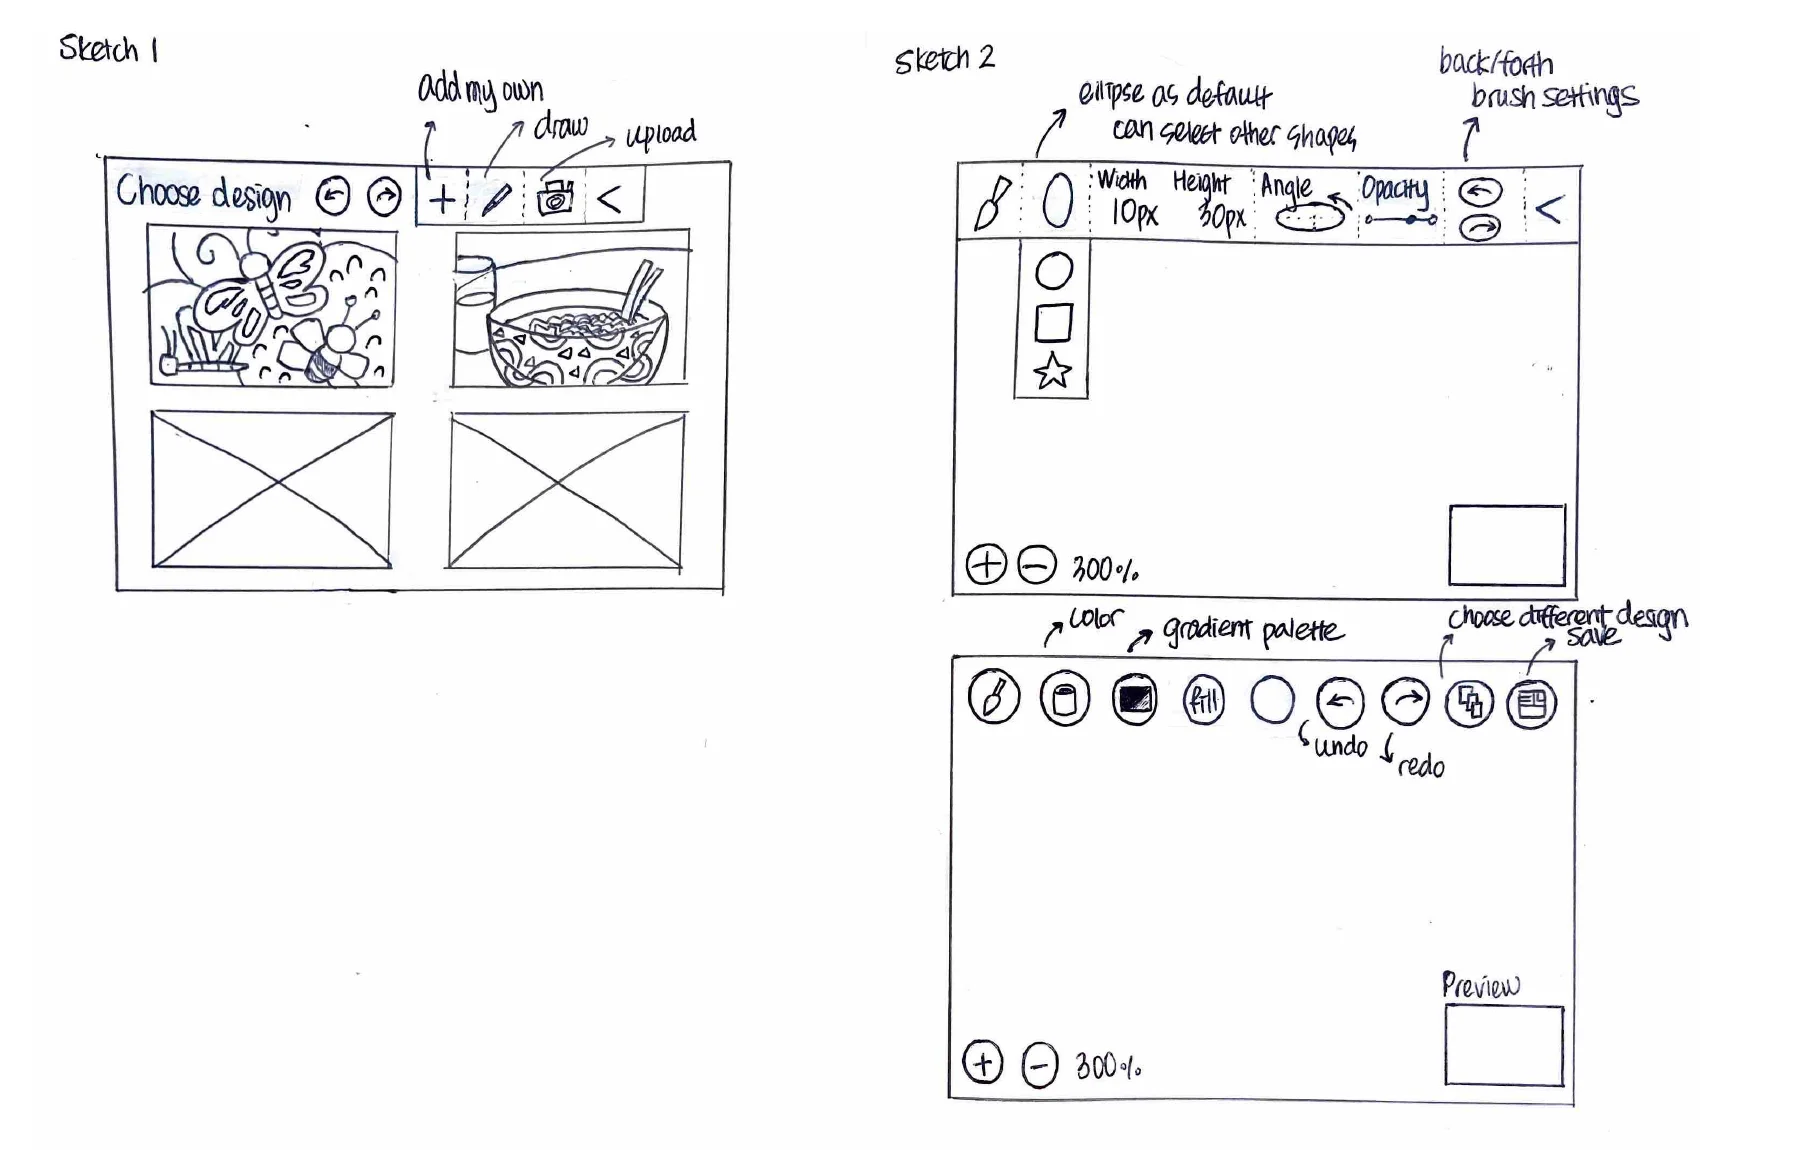 Sketch 1
add my own
draw
upload
Choose design
Sketch 2
ellipse as default
can select other shapes
back/forth
brush settings
Width
10px
Height
30px
Angle
Opacity
300%
color
gradient palette
choose different design
save
fill
undo
redo
Preview
300%